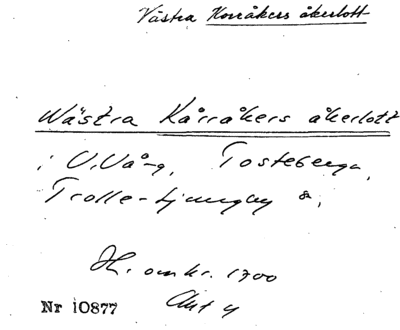 Västra Korråkers åkerlott
Wästra Kårråkers åkerlott
i V. Vång, Tosteberga,
Trolle-Ljungby s,
H. omkr. 1700
Akt 4
Nr 10877